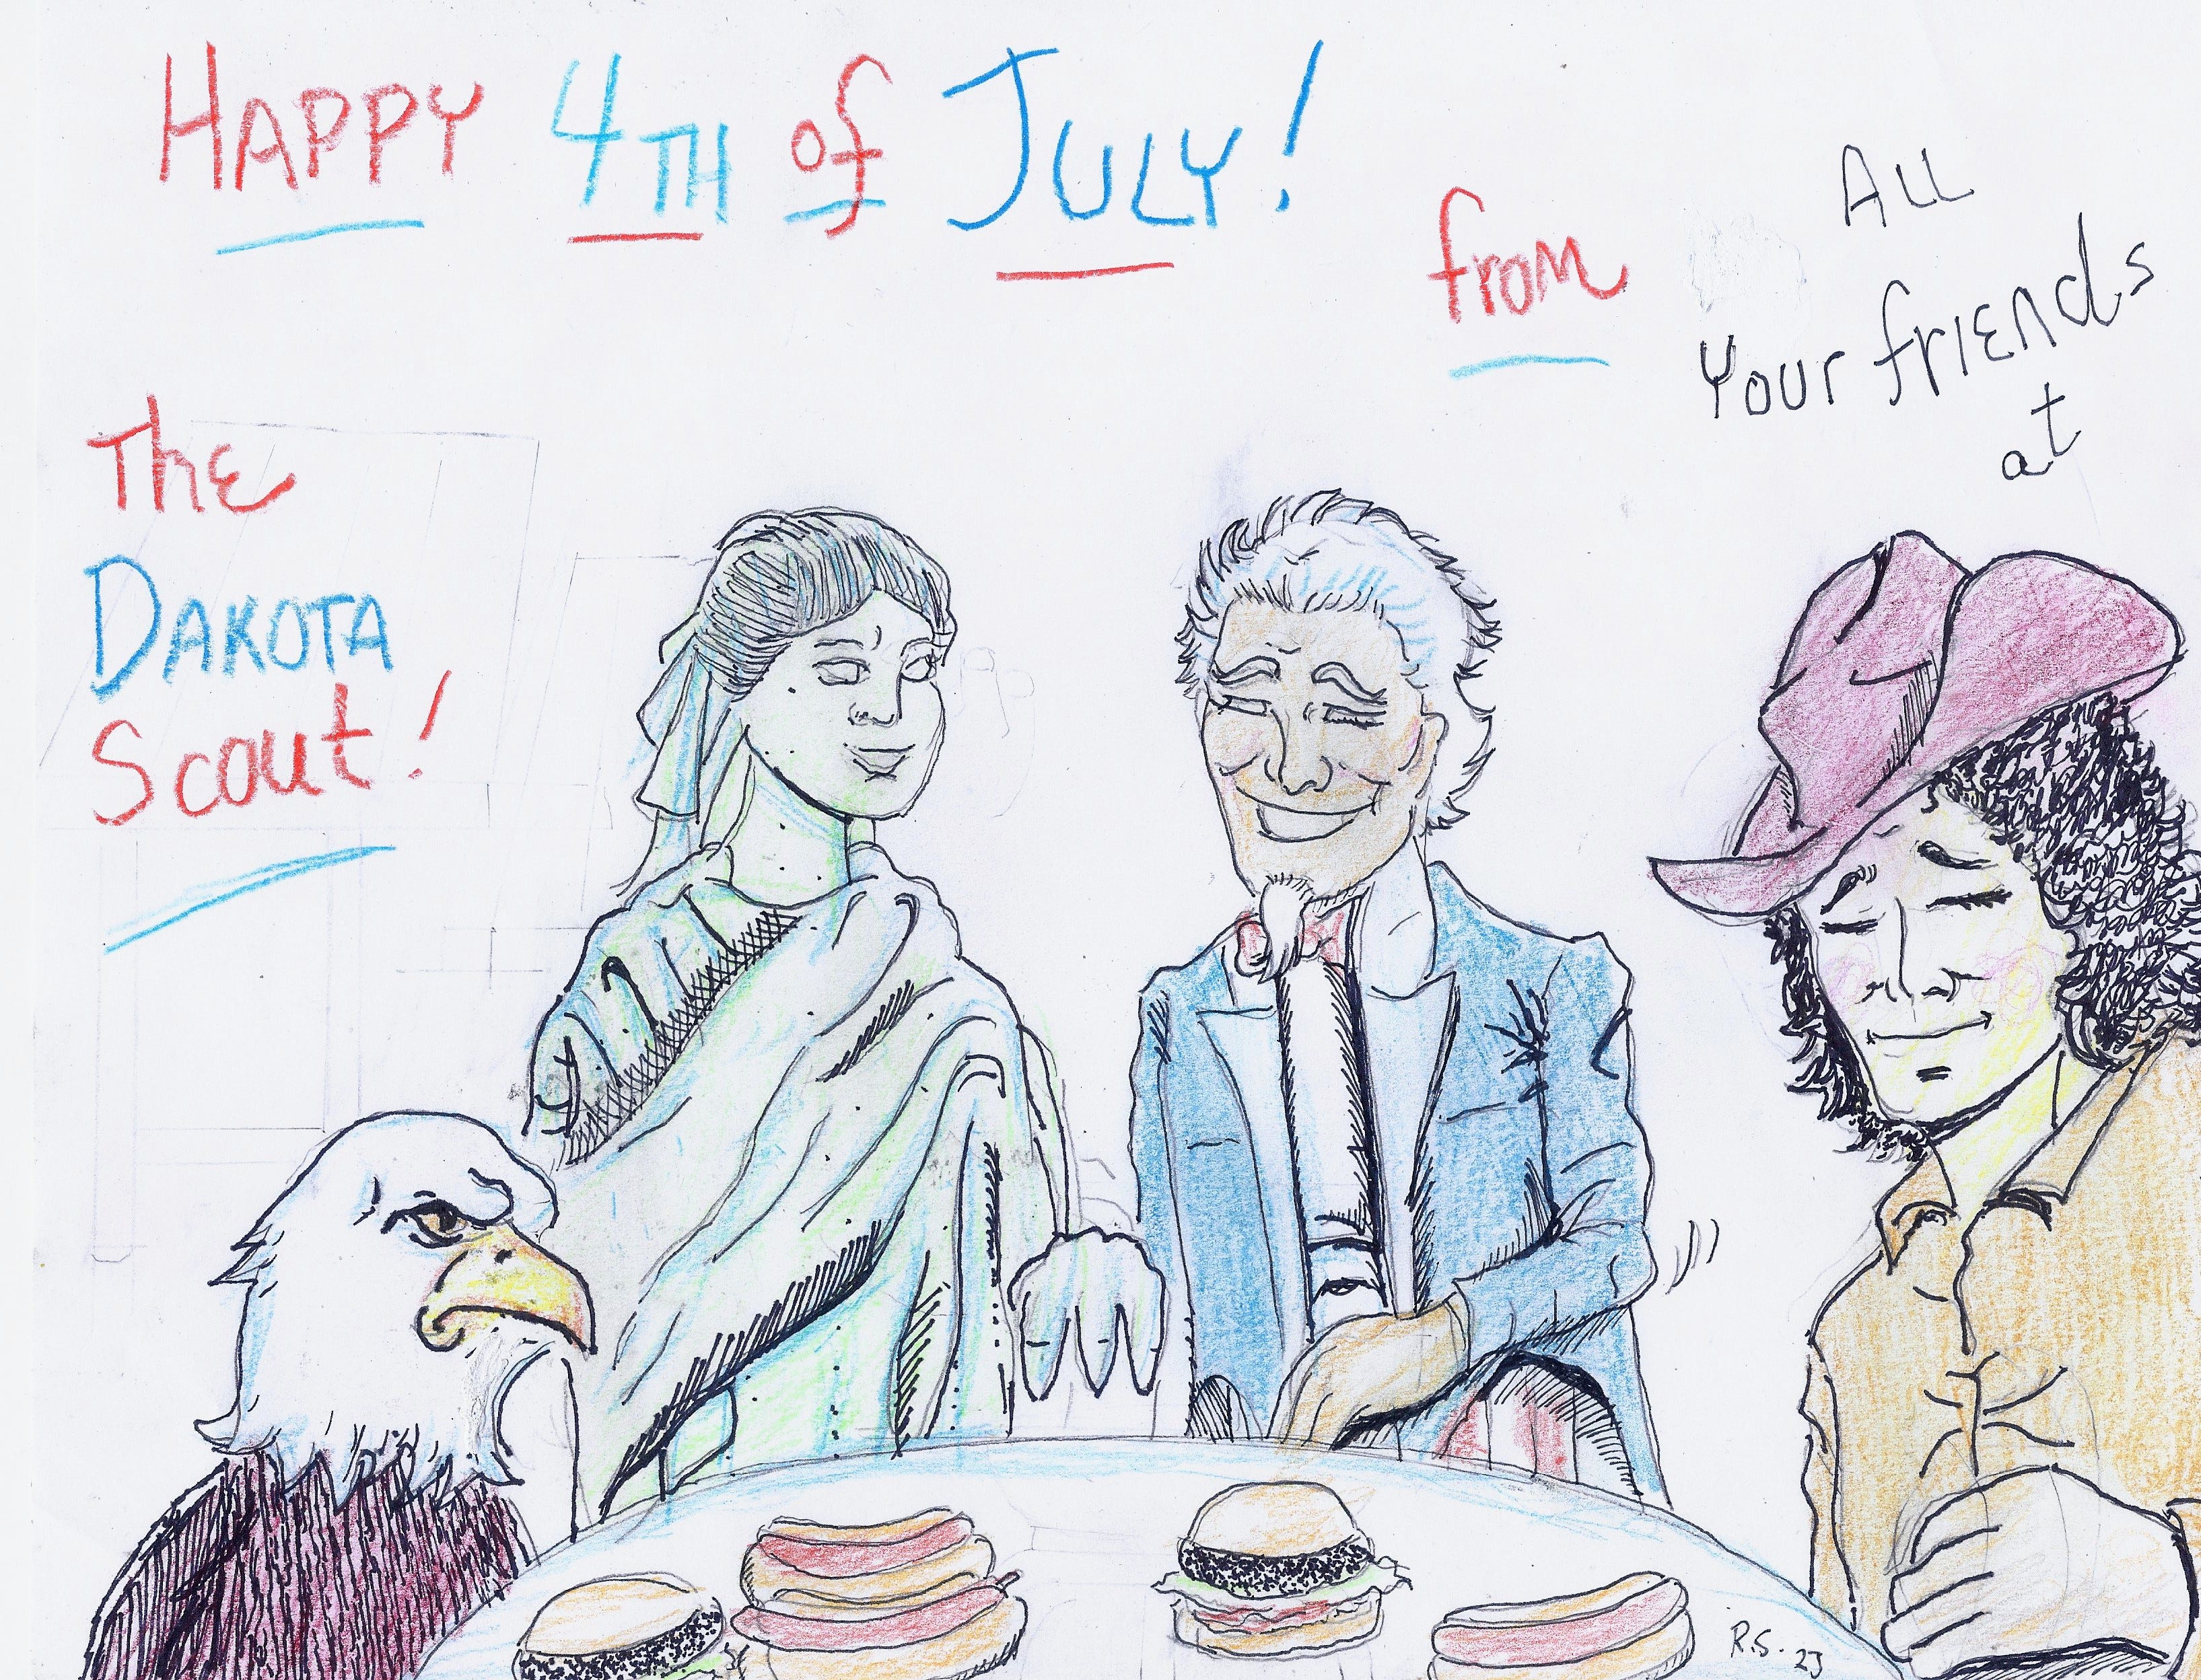 HAPPY 4TH of JULY!
from
ALL
Your friends
at
The
DAKOTA
Scout!
R.S. 23